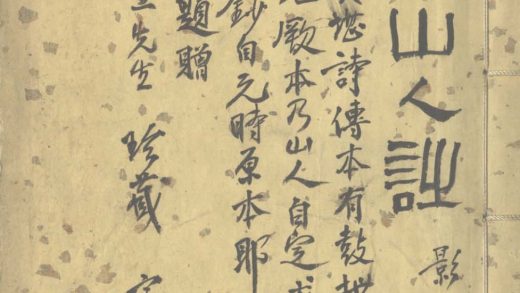 山人詩
影
堪詩傳本有鼓枻
廠本乃山人自定
鈔自元時原本耶
題贈
先生 珍藏